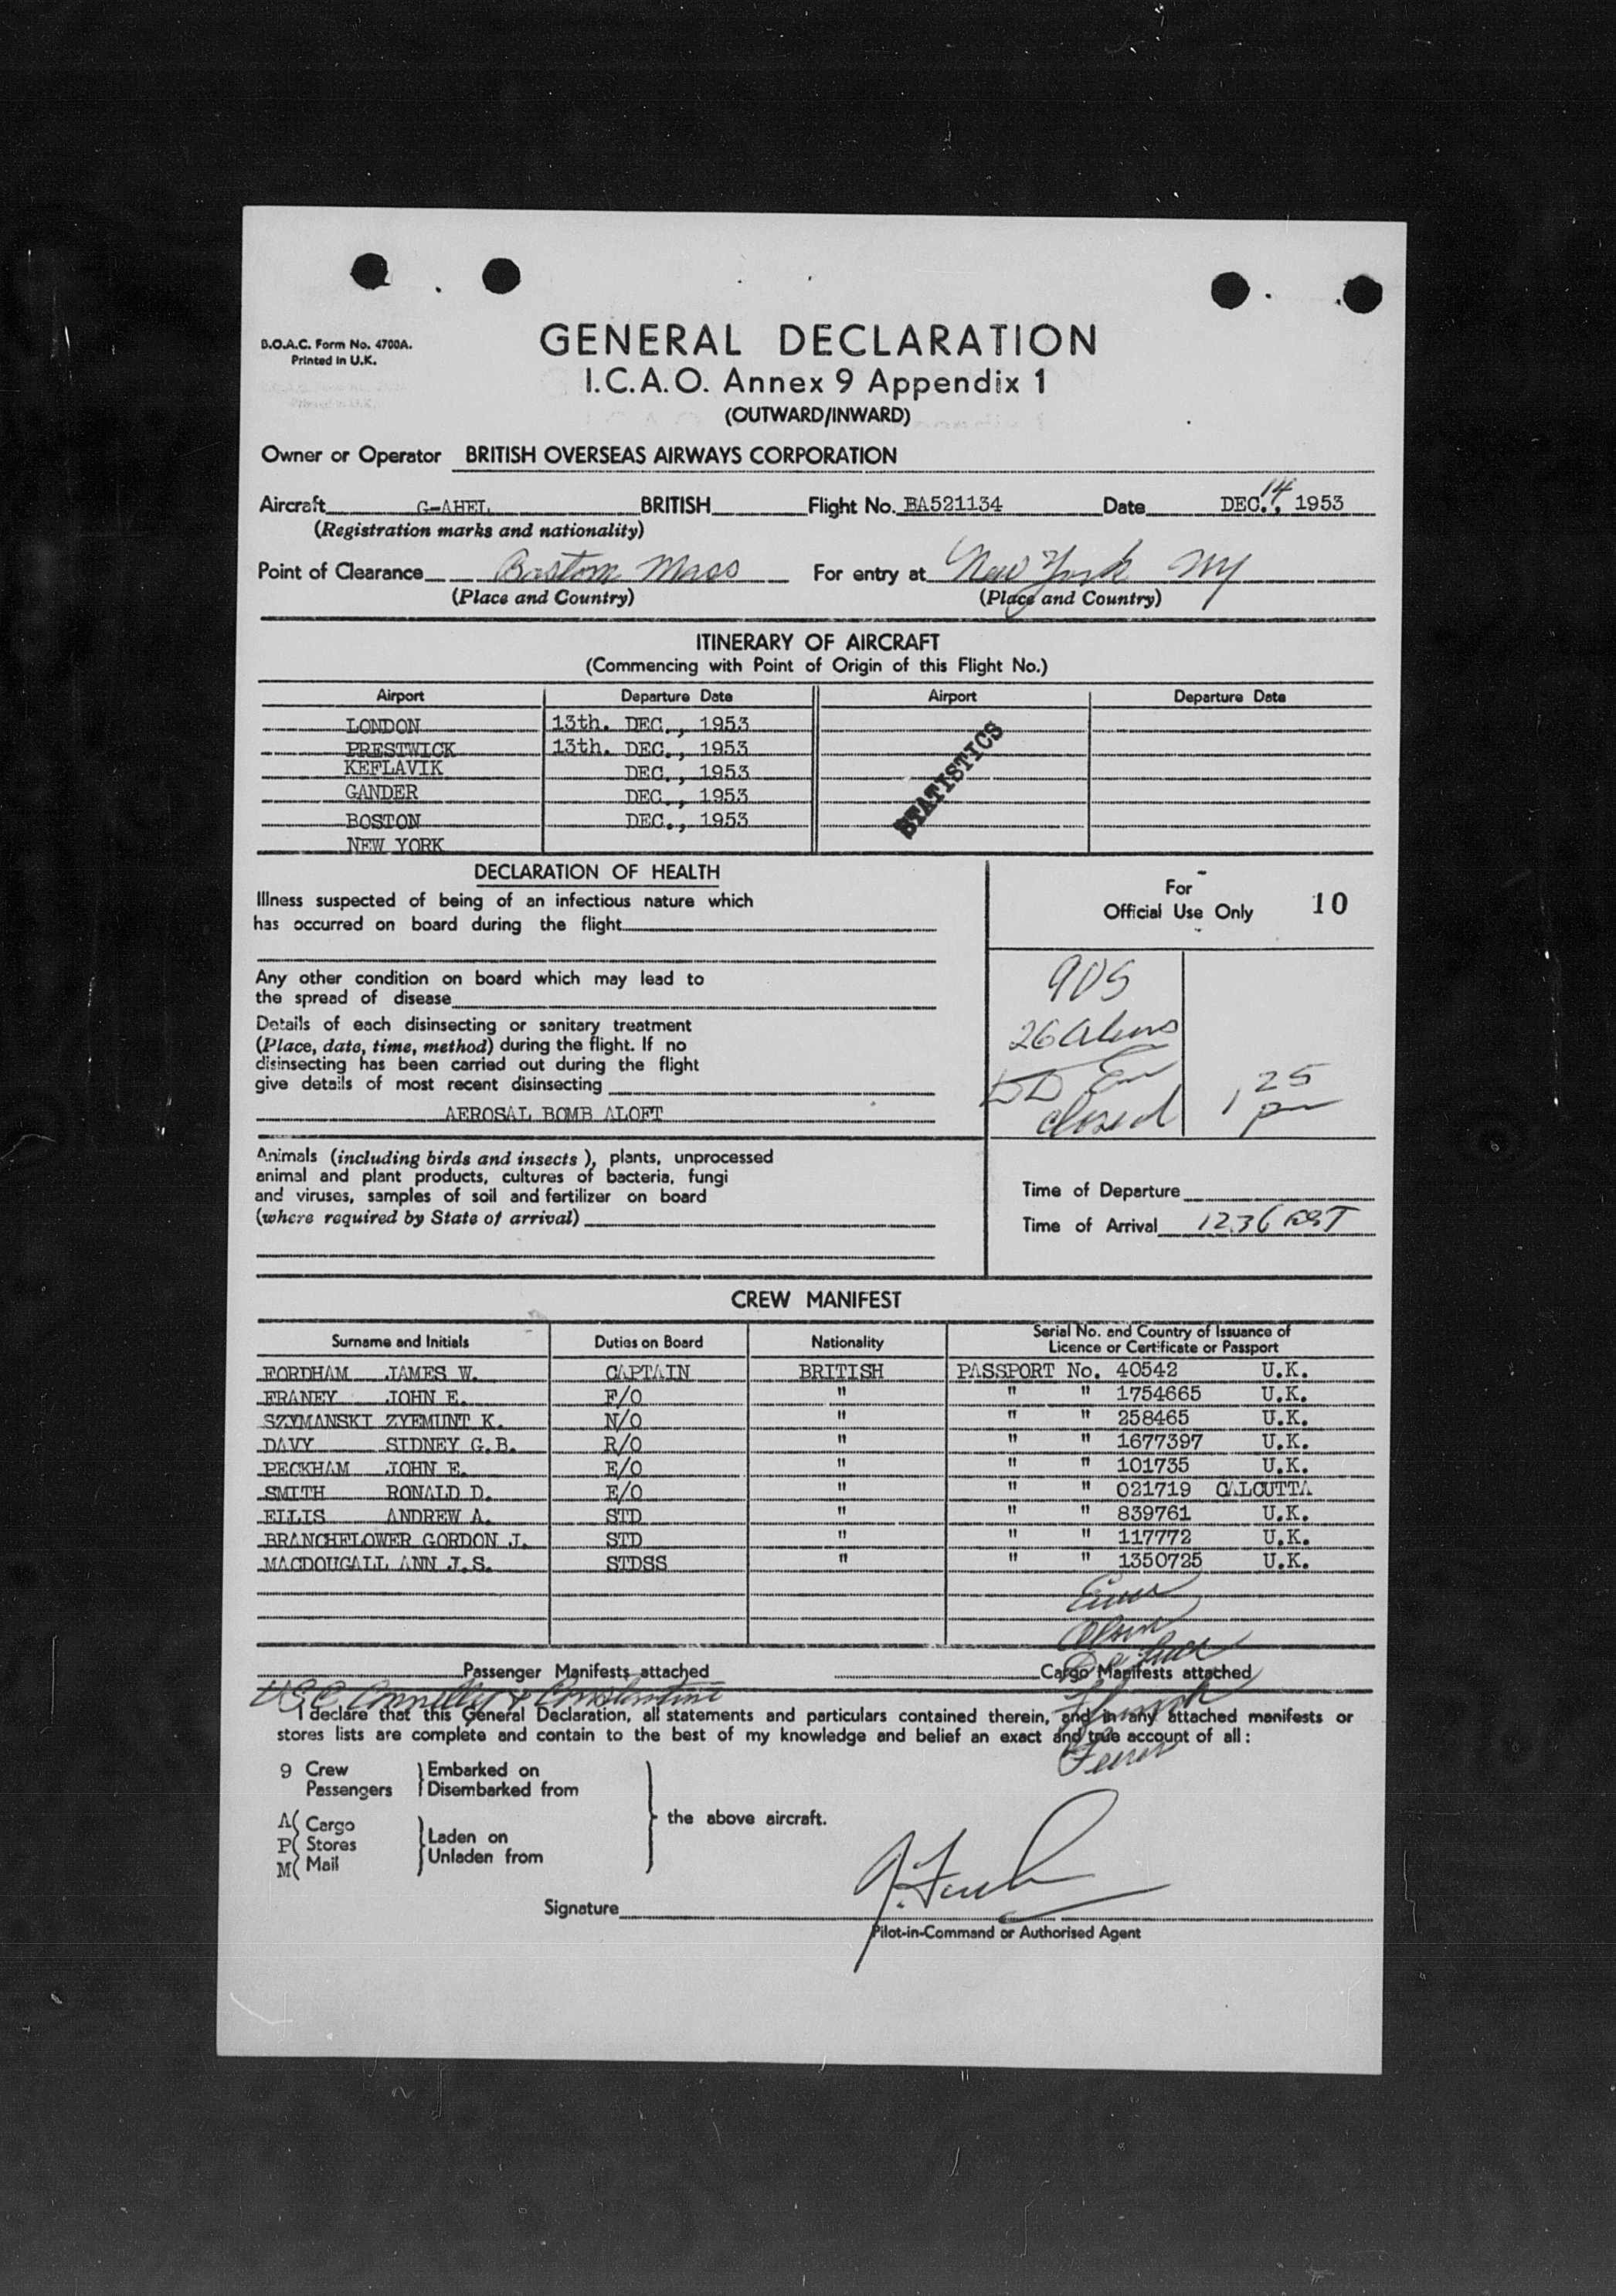 B.O.A.C. Form No. 4700A.
Printed in U.K.
GENERAL DECLARATION
I.C.A.O. Annex 9 Appendix 1
(OUTWARD/INWARD)
Owner or Operator BRITISH OVERSEAS AIRWAYS CORPORATION
Aircraft G-AHEL BRITISH Flight No. BA521134 Date DEC. 14, 1953
(Registration marks and nationality)
Point of Clearance Boston Mass For entry at New York NY
(Place and Country) (Place and Country)
ITINERARY OF AIRCRAFT
(Commencing with Point of Origin of this Flight No.)
Airport Departure Date Airport Departure Date
LONDON 13th. DEC., 1953
PRESTWICK 13th. DEC., 1953
KEFLAVIK DEC., 1953
GANDER DEC., 1953
BOSTON DEC., 1953
NEW YORK
STATISTICS
DECLARATION OF HEALTH
Illness suspected of being of an infectious nature which
has occurred on board during the flight
Any other condition on board which may lead to
the spread of disease
Details of each disinsecting or sanitary treatment
(Place, date, time, method) during the flight. If no
disinsecting has been carried out during the flight
give details of most recent disinsecting
AEROSAL BOMB ALOFT
For
Official Use Only 10
26 Aliens
closed
1 25
pm
Animals (including birds and insects), plants, unprocessed
animal and plant products, cultures of bacteria, fungi
and viruses, samples of soil and fertilizer on board
(where required by State of arrival)
Time of Departure
Time of Arrival 1236 EST
CREW MANIFEST
Surname and Initials Duties on Board Nationality Serial No. and Country of Issuance of
Licence or Certificate or Passport
FORDHAM JAMES W. CAPTAIN BRITISH PASSPORT No. 40542 U.K.
FRANEY JOHN E. F/O " " " 1754665 U.K.
SZYMANSKI ZYEMUNT K. N/O " " " 258465 U.K.
DAVY SIDNEY G.B. R/O " " " 1677397 U.K.
PECKHAM JOHN E. E/O " " " 101735 U.K.
SMITH RONALD D. E/O " " " 021719 CALCUTTA
ELLIS ANDREW A. STD " " " 839761 U.K.
BRANCHFLOWER GORDON J. STD " " " 117772 U.K.
MACDOUGALL ANN J.S. STDSS " " " 1350725 U.K.
Passenger Manifests attached Cargo Manifests attached
I declare that this General Declaration, all statements and particulars contained therein, and in any attached manifests or
stores lists are complete and contain to the best of my knowledge and belief an exact and true account of all:
9 Crew Embarked on
Passengers Disembarked from
the above aircraft.
A( Cargo
P( Stores Laden on
M( Mail Unladen from
Signature
Pilot-in-Command or Authorised Agent